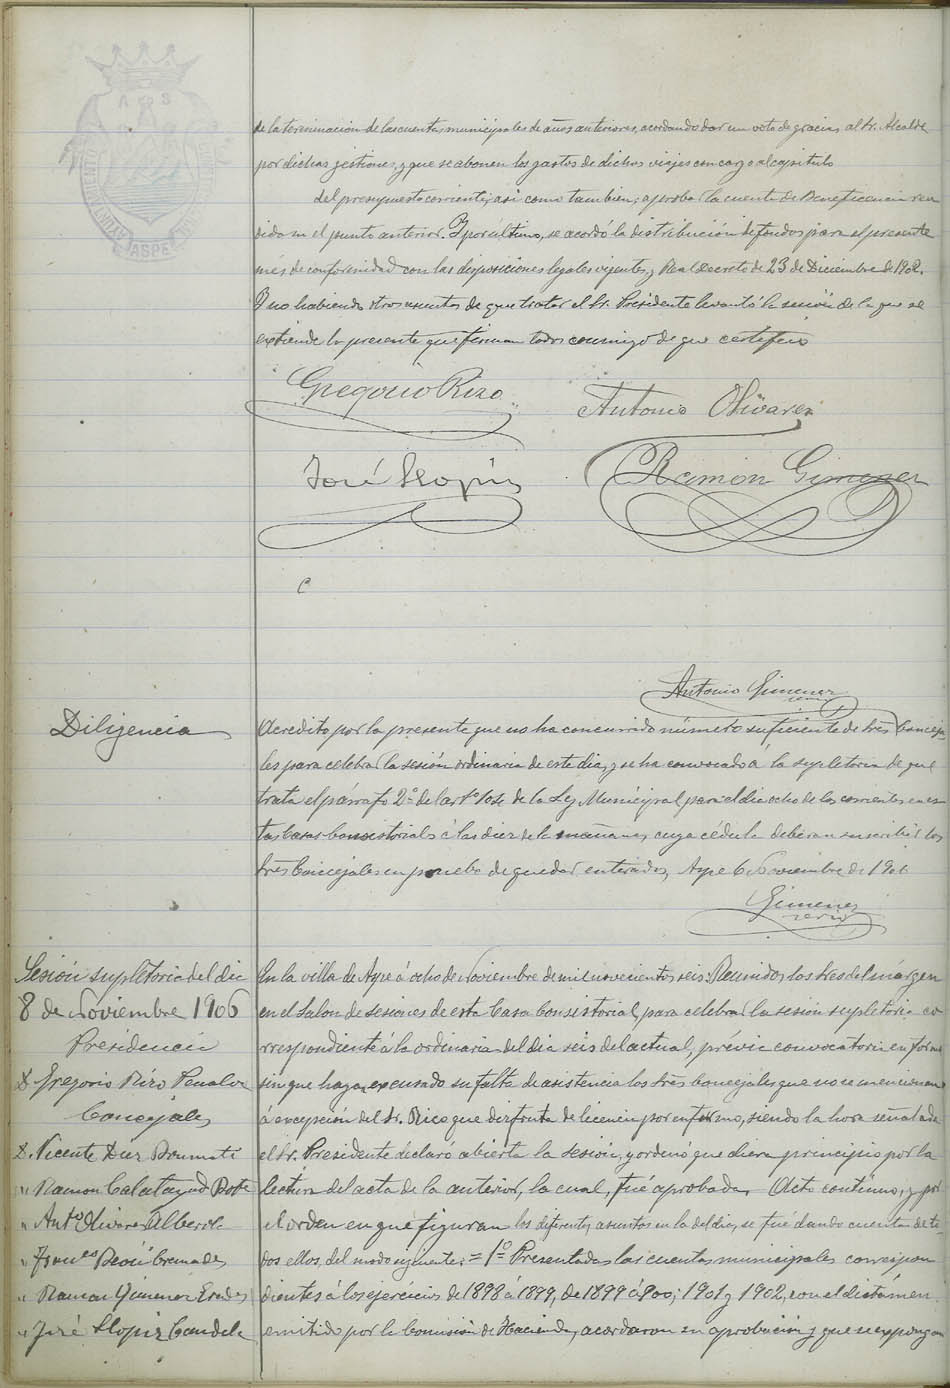 de la terminacion de las cuentas municipales de años anteriores, acordando dar un voto de gracias al Sr. Alcalde
por dichas gestiones, y que se abonen los gastos de dichos viajes con cargo al capitulo
del presupuesto corriente; asi como tambien, aprobar la cuenta de Beneficencia ren
dida en el punto anterior. Y por último, se acordó la distribución de fondos para el presente
més de conformidad con las disposiciones legales vigentes, y Real Decreto de 23 de Diciembre de 1902.
Y no habiendo otros asuntos de que tratar el Sr. Presidente levantó la sesión de la que se
extiende la presente que firman todos conmigo de que certifico
Gregorio Rizo
Antonio Olivares
José Llopis
Ramón Gimenez
Antonio Gimenez
Diligencia
Acredito por la presente que no ha concurrido número suficiente de Sres Conceja
les para celebrar la sesión ordinaria de este dia, y se ha convocado á la supletoria de que
trata el párrafo 2º del artº 104 de la Ley Municipal para el dia ocho de los corrientes en es
tas Casas Consistoriales á las diez de la mañana, cuya cédula deberan suscribir los
Sres Concejales en prueba de quedar enterados, Aspe 6 Noviembre de 1906
Gimenez
Sesión supletoria del dia
8 de Noviembre 1906
Presidencia
D. Gregorio Rizo Penalva
Concejales
D. Vicente Diez Brumati
" Ramon Calatayud Botí
" Antº Olivares Alberola
" Franco Cremades
" Ramon Gimenez Erades
" José Llopiz Candela
En la villa de Aspe á ocho de Noviembre de mil novecientos seis: Reunidos los Sres del márgen
en el Salon de Sesiones de esta Casa Consistorial, para celebrar la sesión supletoria co
rrespondiente á la ordinaria del dia seis del actual, prévia convocatoria en forma
sin que hayan excusado su falta de asistencia los Sres Concejales que no se mencionan
á excepción del Sr. Rico que disfruta de licencia por enfermo, siendo la hora señalada
el Sr. Presidente declaró abierta la sesión, y ordenó que diera principio por la
lectura del acta de la anterior, la cual, fué aprobada. Acto continuo, y por
el orden en que figuran los diferentes asuntos en la del dia, se fué dando cuenta de to
dos ellos, del modo siguiente: = 1º Presentadas las cuentas municipales correspon
dientes á los ejercicios de 1898 á 1899, de 1899 á 900; 1901 y 1902, con el dictámen
emitido por la Comisión de Hacienda, acordaron su aprobación y que se expongan